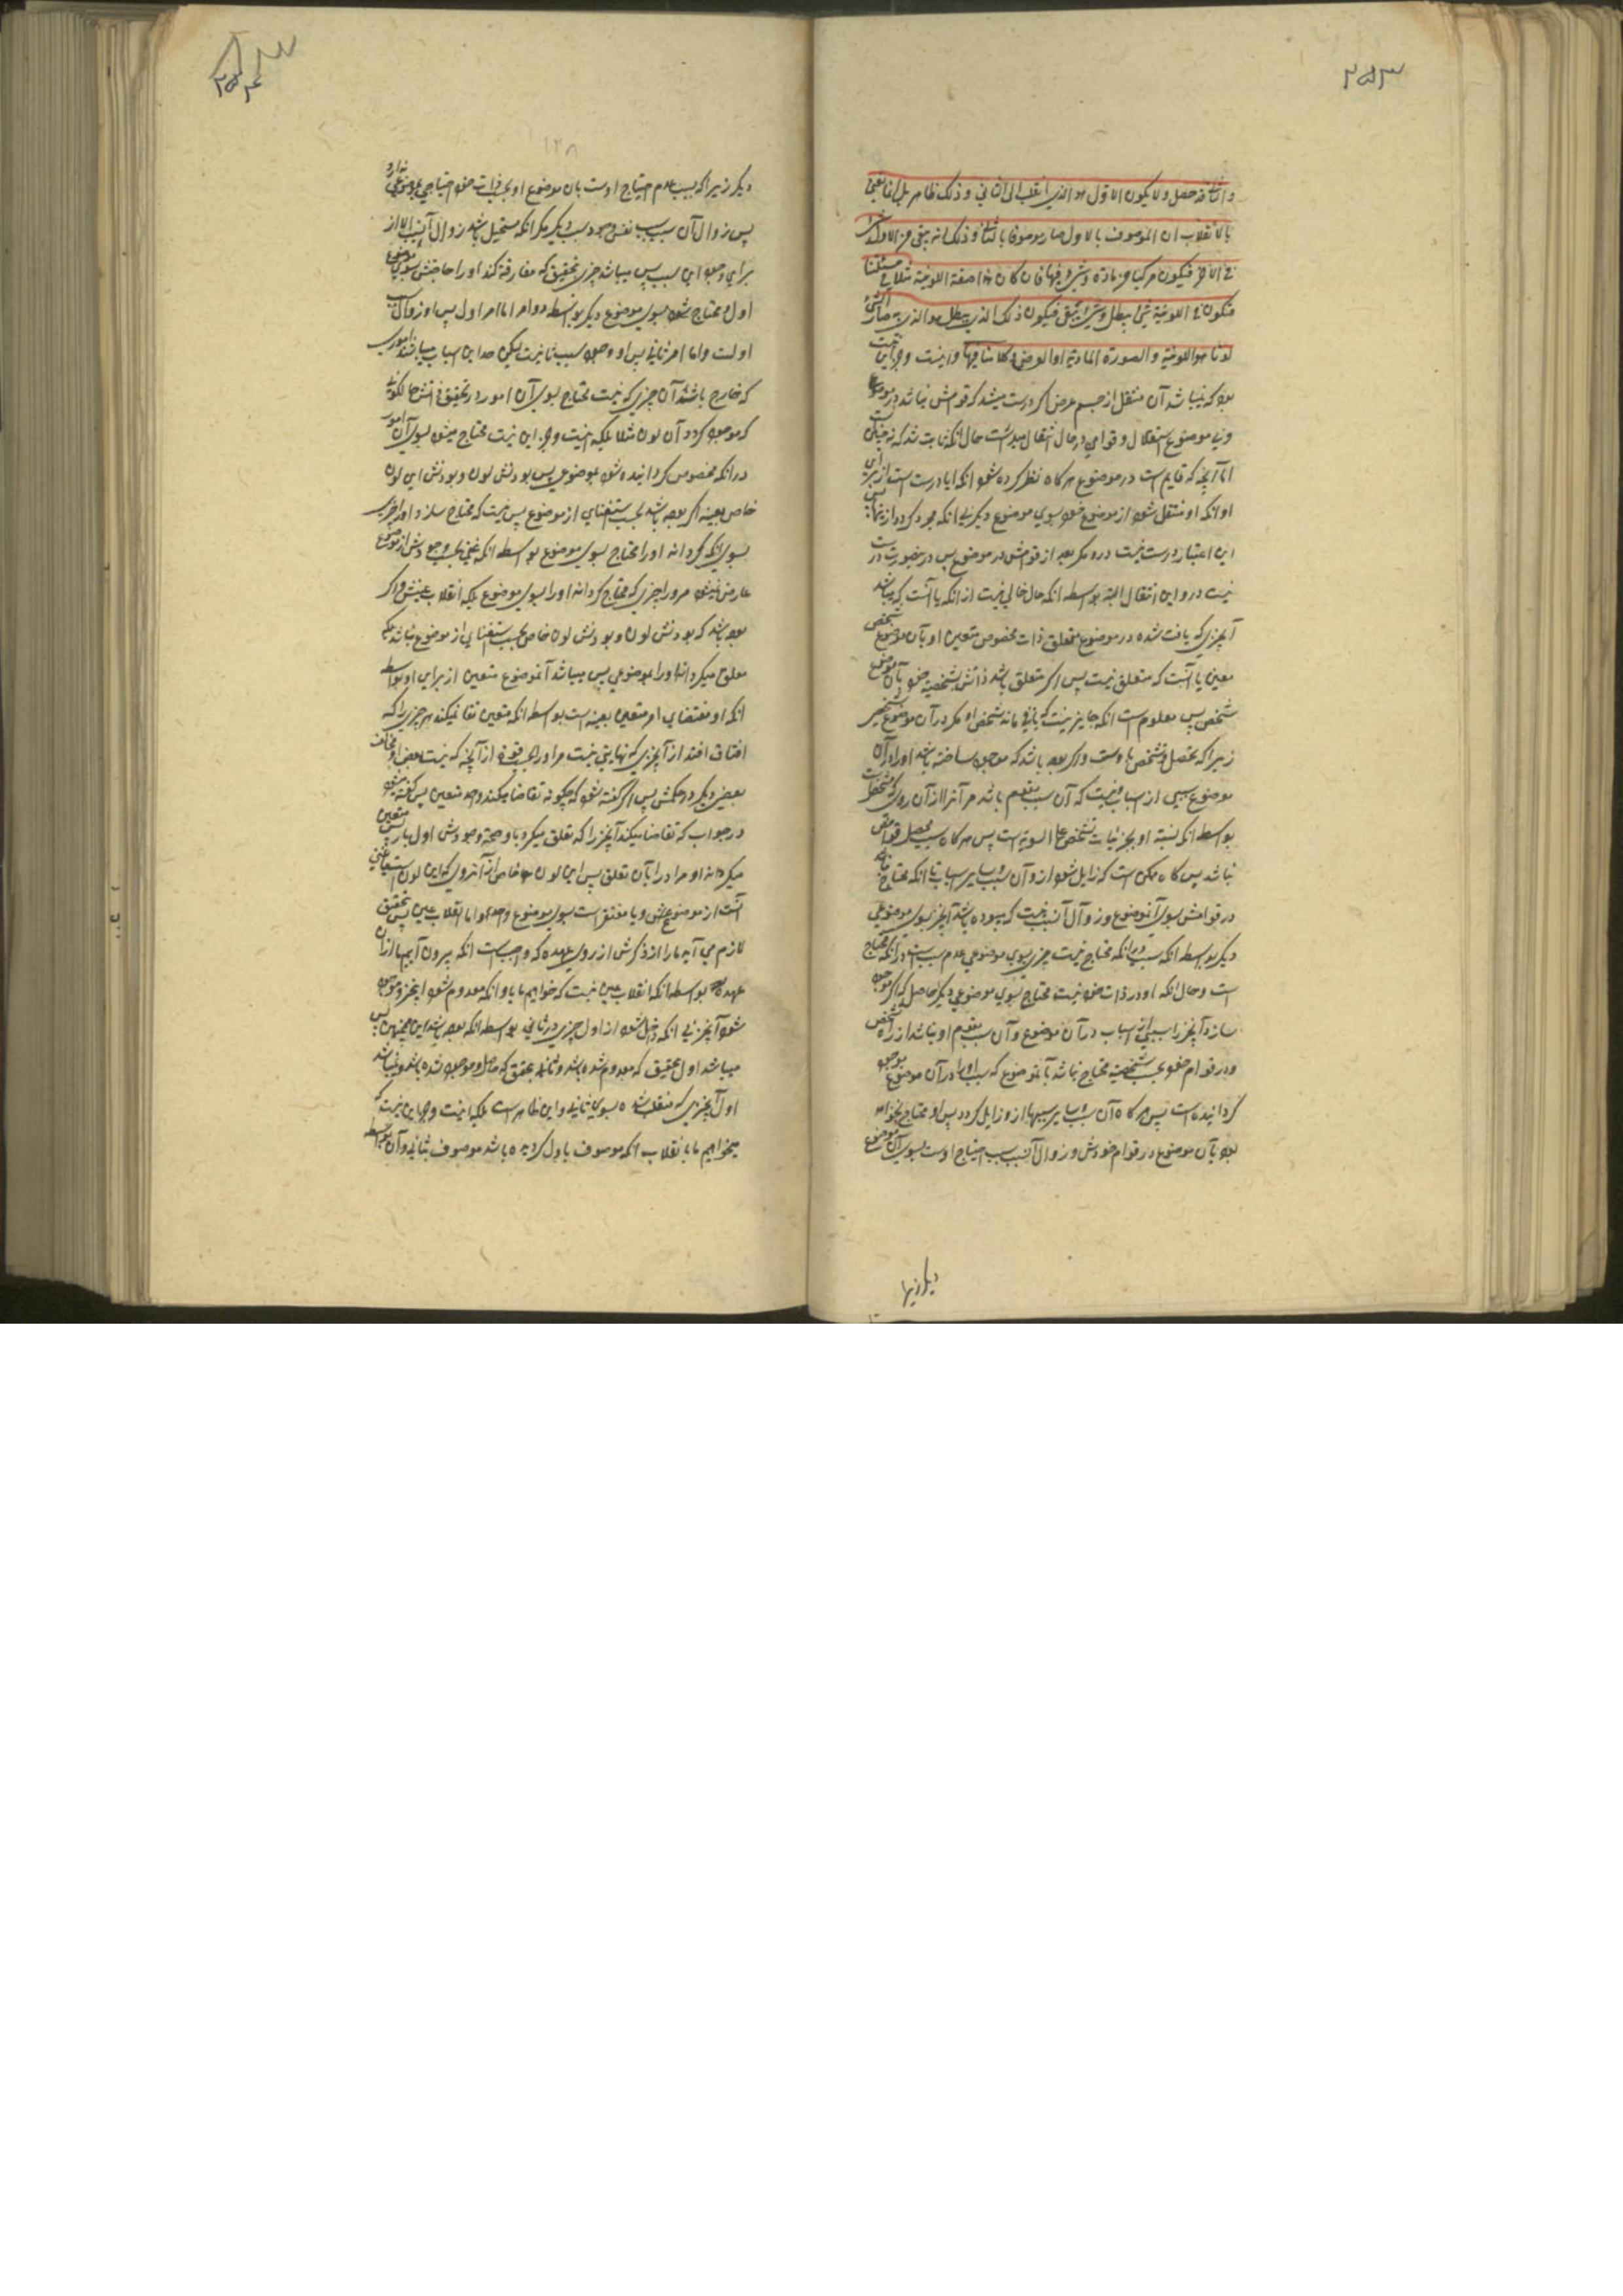 ۲۵۳
والثانی قد حصل ولا یکون الاول هو الذی انقلب الی الثانی و ذلک ظاهر بل انما یعنی
بالانقلاب ان الموصوف بالاول صار موصوفا بالثانی و ذلک انه یبقی من الاول شیء
فی الآخر فیکون مرکبا من مادة و شیء فیها فان کان هذا صفة اللونیة مثلا فی مسئلتنا
فیکون فی اللونیة شیء یبطل و شیء یبقی فیکون ذلک الذی یبطل هو الذی به صار الشیء
لونا هو اللونیة و الصورة المادیة او العرض کلامنا فیها و اینست وجه این است
بود که نمیباشد آن منتقل از جسم عرض اگر درست میشد که قوامش نباشد در موضوع
و بی موضوع استقلال و قوامی در حال انتقال میداشت حال آنکه ثابت شد که نه چنین است
اما آنچه که قایم است در موضوع هرگاه نظر کرده شود آنکه ایا درست است از برای
او آنکه او منتقل شود از موضوع خود بسوی موضوع دیگر بی آنکه مجرد گردد از اینها پس
این اعتبار درست نیست درو مگر بعد از قوامش در موضوع پس درینصورت درست
نیست درو این انتقال البته بواسطه آنکه حال خالی نیست از آنکه یا آنست که میباشد
آنچیزی که یافت شده در موضوع متعلق ذات مخصوص متعین او بآن موضوع شخص
معین یا آنست که متعلق نیست پس اگر متعلق باشد ذاتش بشخصیه خود بآن موضوع
شخصی پس معلوم است آنکه جایز نیست که باقی ماند شخص او مگر در آن موضوع شخصی
زیرا که تحصل و تشخص باوست و اگر بوده باشد که موجود ساخته باشد او را در آن
موضوع سببی از اسباب و نیست که آن سبب مقوم باشد مر آنرا از آن روی که مشخص است
بواسطه آنکه نسبة او بجزئیات تشخص علی السویه است پس هرگاه سبب محصل قوامش
نباشد پس گاه ممکن است که زایل شود ازو آن سبب و سایر اسباب تا آنکه محتاج نباشد
در قوامش بسوی آنموضوع و زوال آنسبب نیست که بوده باشد آنچیز بسوی موضوعی
دیگر بواسطه آنکه سبب در آنکه محتاج نیست چیزی بسوی موضوعی عدم سبب است در آنکه محتاج
است و حال آنکه او در ذات خود نیست محتاج بسوی موضوعی دیگر حاصل که اگر موجود
سازد آنچیز را سببی از اسباب در آن موضوع و آن سبب مقوم او نباشد از راه تشخص
و در قوام خود بحسب شخصیه محتاج نباشد بآنموضوع که سبب او را در آن موضوع موجود
گردانیده است پس هرگاه آن سبب و سایر سببها ازو زایل گردد پس او محتاج نخواهد
بود بآن موضوع در قوام خودش و زوال آنسبب سبب احتیاج اوست بسوی آن موضوع
دیگر زیرا
۲۵۴
دیگر زیرا که سبب عدم احتیاج اوست بآن موضوع او بحسب ذات خود احتیاجی بموضوعی ندارد
پس زوال آن سبب سبب نفس وجود سبب دیگر مگر آنکه مستحیل باشد زوال آنسبب الا از
برای وجود این سبب پس میباشد چیزی بتحقیق که مفارقة کند او را حاجتش بسوی موضوع
اول و محتاج شود بسوی موضوع دیگر بواسطه دو امر اما امر اول پس او زوال سبب
اولست و اما امر ثانی پس او وجود سبب ثانیست لیکن همه این اسباب میباشند اموری
که خارج باشند آن چیزی که نیست محتاج بسوی آن امور در تحقیق ذاتش حال لونی
که موجود گردد آن لون مثلا بلکه اینست و جز این نیست محتاج میشود بسوی آن امور
در آنکه مخصوص گردانیده شود بموضوعی پس بودنش لون و بودنش این لون
خاص بعینه اگر بوده باشد بحسب استغنای از موضوع پس نیست که محتاج سازد او را چیزی
بسوی آنکه گرداند او را محتاج بسوی موضوع بواسطه آنکه غنی بحسب وجودش از موضوع
عارض نمیشود مر او را چیزی که محتاج گرداند او را بسوی موضوع بلکه انقلاب عینش و اگر
بوده باشد که بودنش لون و بودنش لون خاص بحسب استغنای از موضوع نباشد بلکه
معلق میگرداند او را بموضوعی پس میباشد آنموضوع متعین از برای او بواسطه
آنکه او مقتضای امر متعین بعینه است بواسطه آنکه متعین تقاضا نمیکند هر چیزی را که
اتفاق افتد از آنچیزی که نهایتی نیست مر او را بحسب قوة از آنچه که نیست بعض او مخالف
بعض دیگر در حکمش پس اگر گفته شود که چگونه تقاضا میکند واحد متعین پس گفته میشود
در جواب که تقاضا میکند آنچیز را که تعلق میگیرد باو صحة وجودش اول بار پس متعین
میگرداند او مر او را بآن تعلق پس این لون خاص از آنروی که این لون است یا غنی
است از موضوعش و یا مفتقر است بسوی موضوع واحد و اما انقلاب عین پس بتحقیق
لازم می آید ما را از ذکرش از روی عهده که واجبست آنکه بیرون آییم ما از آن
عهده بواسطه آنکه انقلاب عین نیست که خواهیم ما باو آنکه معدوم شود اینچیز و موجود
شود آنچیز بی آنکه داخل شود از اول چیزی در ثانی بواسطه آنکه بوده باشد این همچنین پس
میباشد اول بتحقیق که معدوم شده باشد و ثانی بتحقیق که حاصل و موجود شده باشد و نمیباشد
اول آنچیزی که منقلب شده بسوی ثانی و این ظاهر است بلکه اینست و جز این نیست که
میخواهیم ما بانقلاب آنکه موصوف باول گردیده باشد موصوف بثانی و آن بواسطه